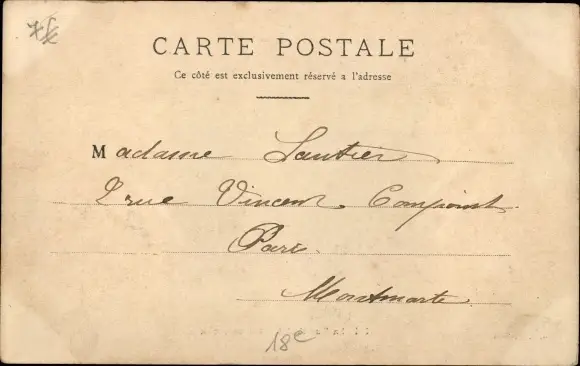 CARTE POSTALE
Ce côté est exclusivement réservé a l'adresse
Madame Lautier
2 rue Vincent Compoint
Paris
Montmartre
18e